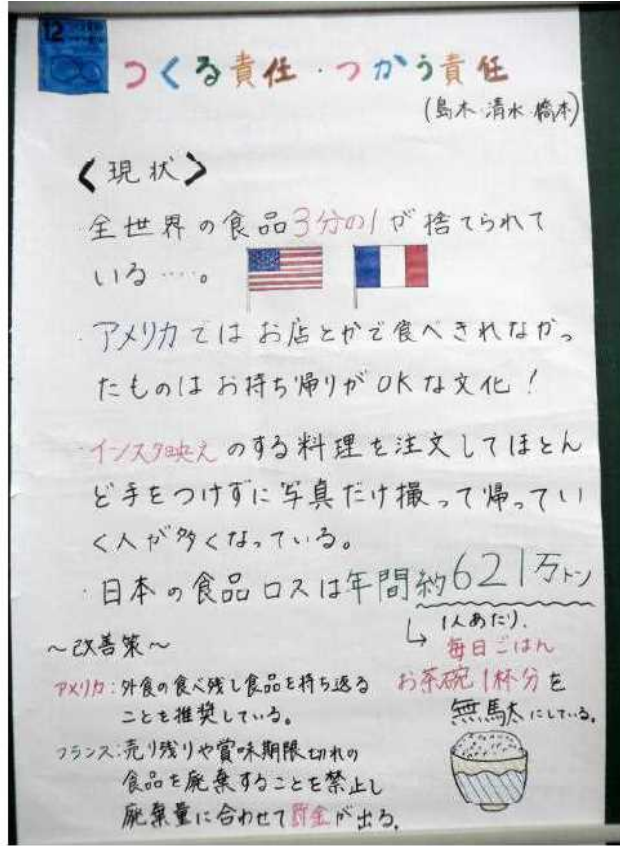 12
つくる責任・つかう責任
(島木・清水・橋本)
〈現状〉
・全世界の食品3分の1が捨てられて
いる…。
・アメリカではお店とかで食べきれなかっ
たものはお持ち帰りがOKな文化!
・インスタ映えのする料理を注文してほとん
ど手をつけずに写真だけ撮って帰ってい
く人が多くなっている。
・日本の食品ロスは年間約621万トン
↳1人あたり、
毎日ごはん
お茶碗1杯分を
無駄にしている。
〜改善策〜
アメリカ:外食の食べ残し食品を持ち返る
ことを推奨している。
フランス:売り残りや賞味期限切れの
食品を廃棄することを禁止し
廃棄量に合わせて罰金が出る。